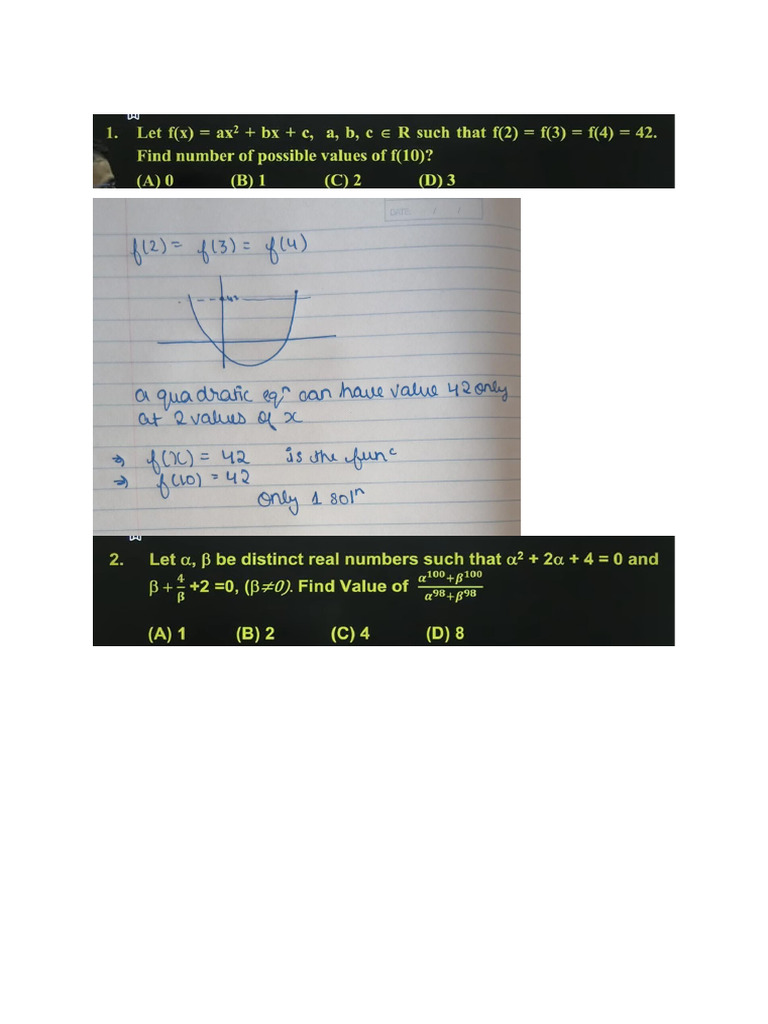 1. Let f(x) = ax² + bx + c, a, b, c ∈ R such that f(2) = f(3) = f(4) = 42.
Find number of possible values of f(10)?
(A) 0 (B) 1 (C) 2 (D) 3
DATE: / /
f(2) = f(3) = f(4)
42
a quadratic eqⁿ can have value 42 only
at 2 values of x
⇒ f(x) = 42 is the funᶜ
⇒ f(10) = 42
Only 1 solⁿ
2. Let α, β be distinct real numbers such that α² + 2α + 4 = 0 and
β + 4/β +2 =0, (β≠0). Find Value of (α¹⁰⁰+β¹⁰⁰)/(α⁹⁸+β⁹⁸)
(A) 1 (B) 2 (C) 4 (D) 8